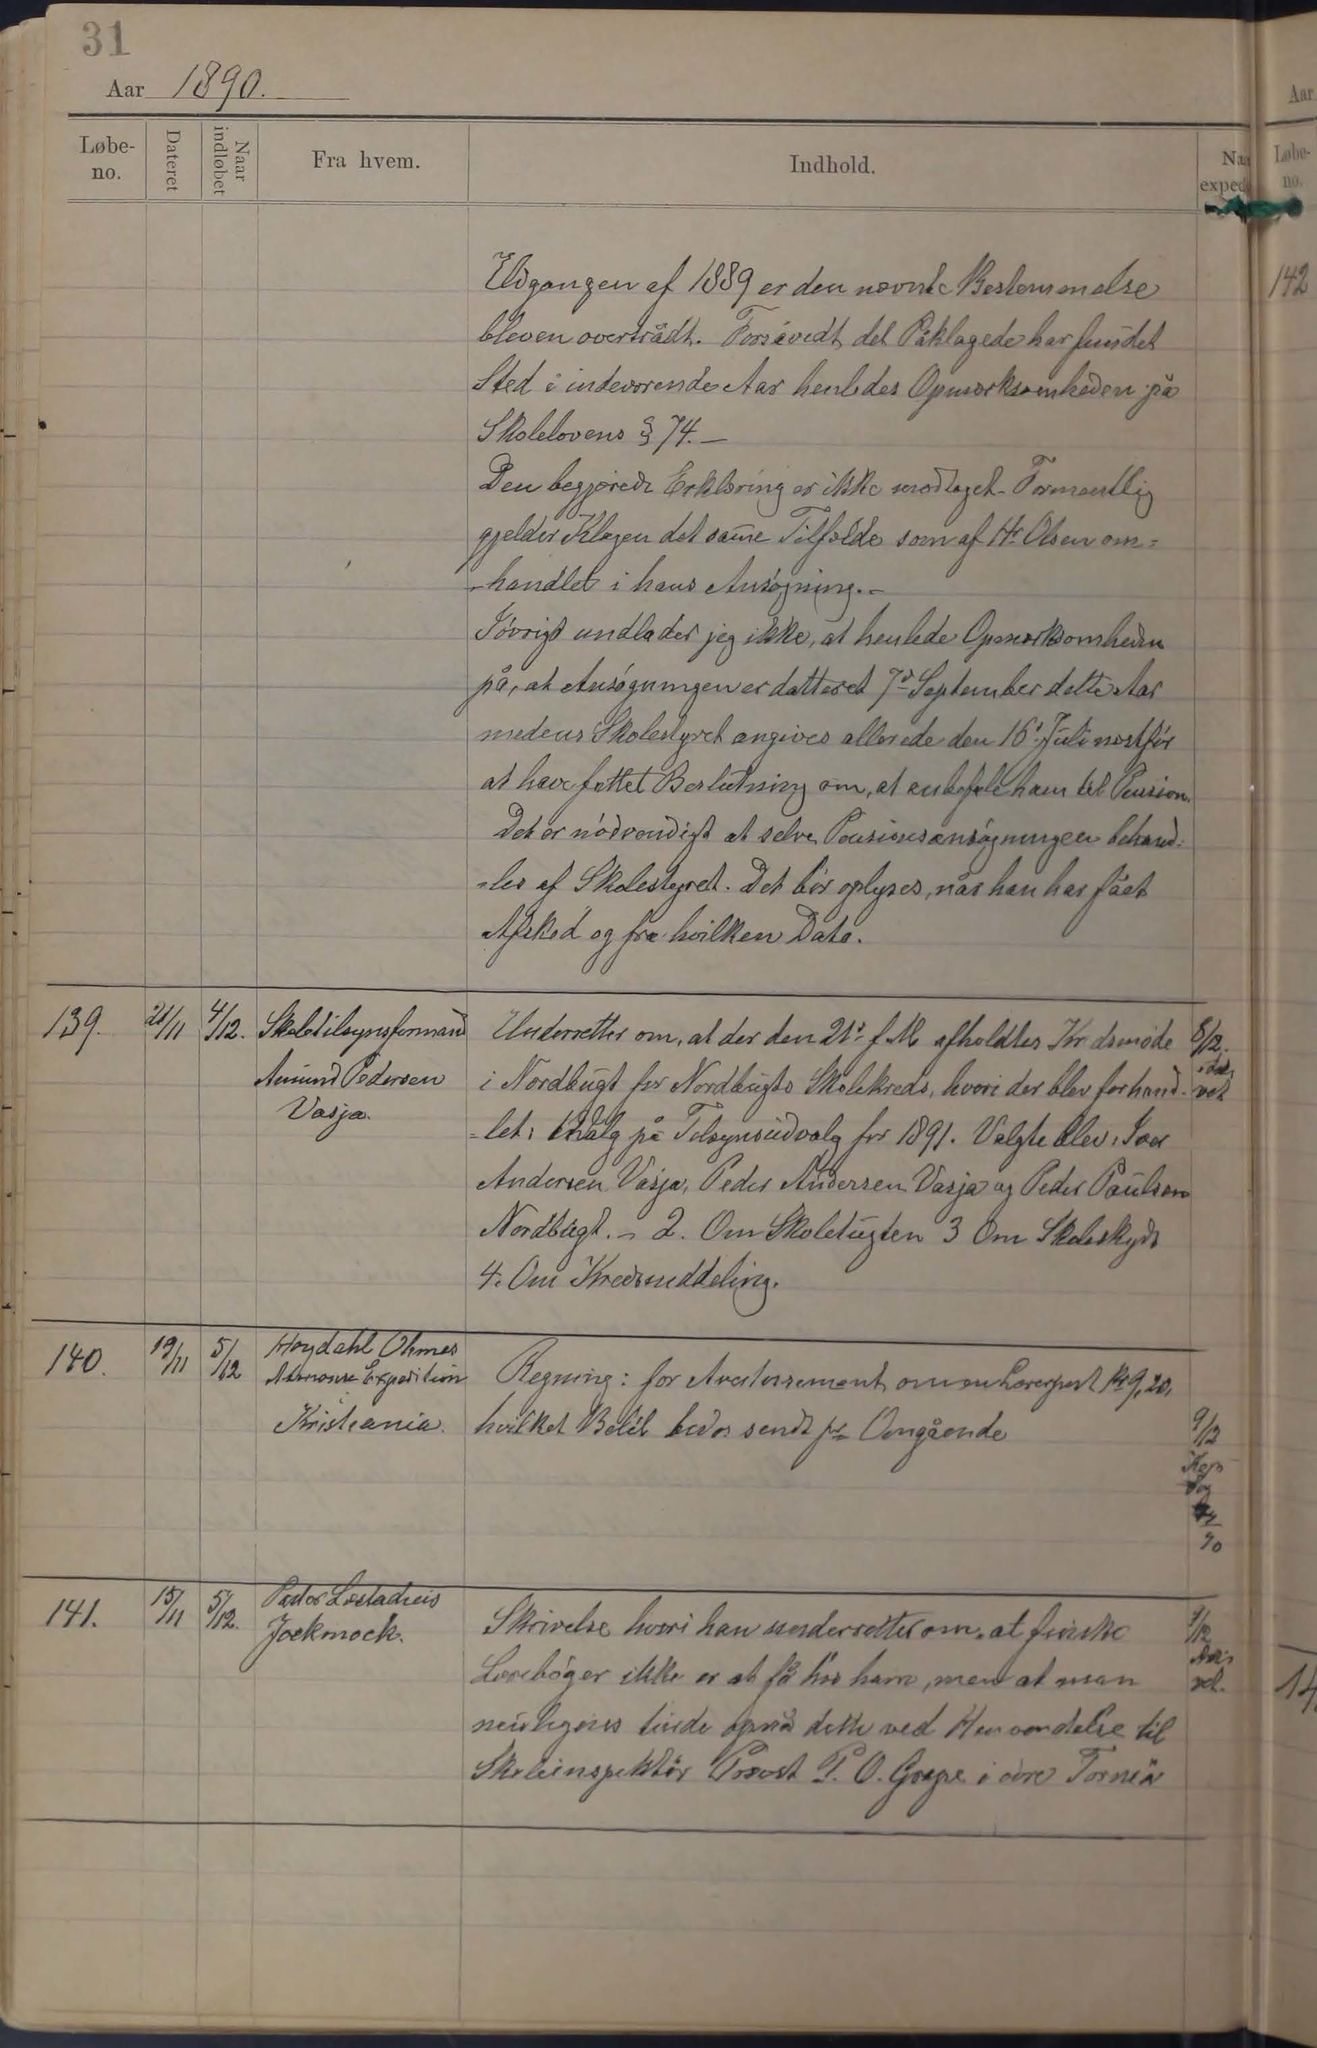 31
Aar 1890.
Løbe-
no.
Dateret
Naar
indløbet
Fra hvem.
Indhold.
Udgangen af 1889 er den nævnte Bestemmelse
bleven overtrådt. Forsåvidt det Påklagede har fundet
Sted i indeværende Aar henledes Opmærksomheden på
Skolelovens § 74.—
Den begjærede Erklæring er ikke modtaget. Formentlig
gjelder Klagen det samme Tilfælde som af Hr Olsen om=
-handlet i hans Ansøgning.-
Iøvrigt undlader jeg ikke, at henlede Opmærksomheden
på, at Ansøgningen er datteret 7d September dette Aar
medens Skolestyret angives allerede den 16d Juli næstfør
at have fattet Beslutning om, at anbefale ham til Pension.
Det er nødvendigt at selve Pensionsansøgningen behand=
-les af Skolestyret. Det bør oplyses, når han har fået
Afsked og fra hvilken Dato.
139. 21/11 4/12. Skoletilsynsformand
Amund Pedersen
Vasja.
Underretter om, at der den 21d f. M. afholdtes Kredsmøde
i Nordbugt for Nordbugts Skolekreds, hvori der blev forhand-
=let: Valg på Tilsynsudvalg for 1891. Valgte blev: Iver
Andersen Vasja, Peder Andersen Vasja og Peder Paulsen
Nordbugt. - 2. Om Skoletugten 3 Om Skoleskyds
4. Om Kredsinddeling.
8/12.
140. 19/11 5/12 Høydahl Ohmes
Annonse Expedition
Kristiania.
Regning: for Avertissement om en Lærerpost Kr 9,20,
hvilket Beløb bedes sendt pr Omgående
9/12
141. 15/11 5/12. Pastor Læstadius
Jockmock.
Skrivelse hvori han underretter om, at finske
Lærebøger ikke er at få hos ham, men at man
muligens turde opnå dette ved Henvendelse til
Skoleinspektør Provst P. O. Grape i övre Torneå
9/12
Aar
Løbe-
no.
142